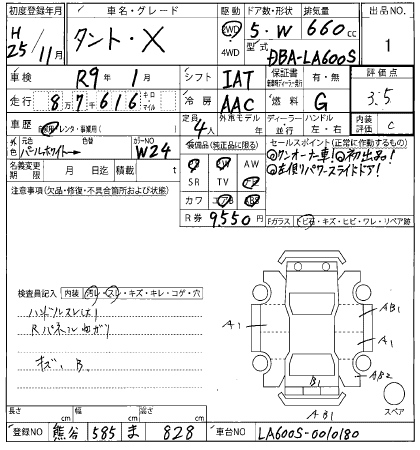 初度登録年月 車名・グレード 駆動 ドア数・形状 排気量 出品NO
H 25/11月 タント・X 2WD 4WD 5・W 660 cc 1
型式 DBA-LA600S
車検 R9年1月 シフト IAT 保証書 有・無 評価点
走行 87616 キロ マイル 冷房 AAC 燃料 G 3.5
車歴 自家用・レンタ・事業用( ) 定員 4人 外車モデル 年 ディーラー 並行 ハンドル 左・右 内装評価 C
外色 元色 パールホワイト→ 色替 カラーNO W24 装備品(純正品に限る) セールスポイント(正常に作動するもの)
名義変更期限 月 日迄 積載 t PS PW AW ◎ワンオーナー車!◎初出品!
SR TV ◎左側パワースライドドア!
注意事項(欠品・修復・不具合箇所および状態) カワ エアB ABS
R券 9,550円 Fガラス トビ石・キズ・ヒビ・ワレ・リペア跡
検査員記入 内装 汚レ・スレ・キズ・キレ・コゲ・穴
ハンドルスレ有
Rパネルゆがり
キズ、B.
A1 AB1
A1
B1 AB2
AB1 スペア
長さ cm 幅 cm 高さ cm
登録NO 熊谷 585 ま 828 車台NO LA600S-0010180